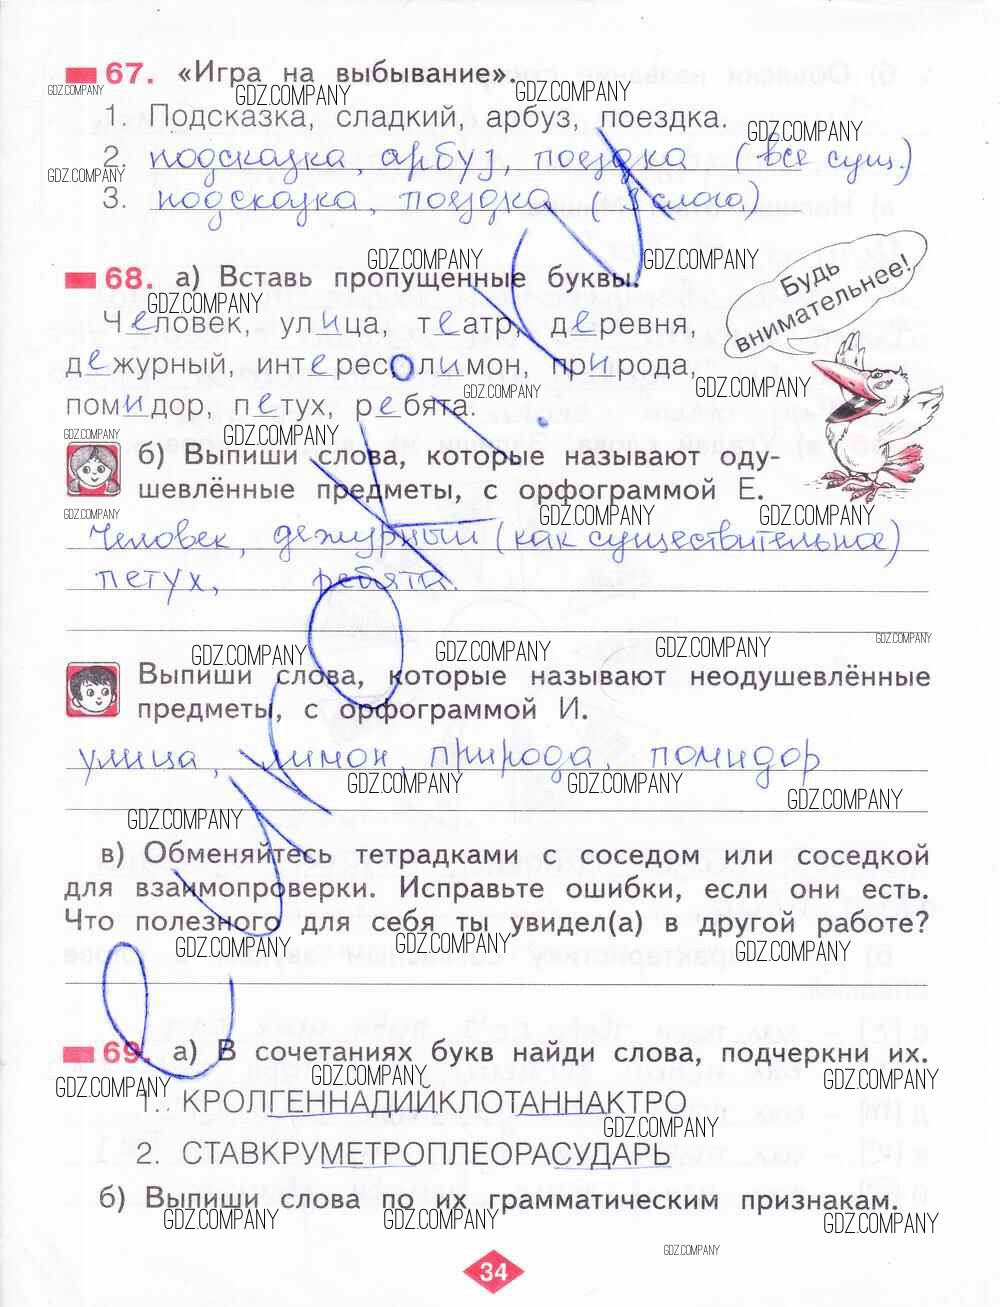 67. «Игра на выбывание».
1. Подсказка, сладкий, арбуз, поездка.
2. подсказка, арбуз, поездка (все сущ.)
3. подсказка, поездка (3 слога)
68. а) Вставь пропущенные буквы.
Будь внимательнее!
Человек, улица, театр, деревня,
дежурный, интерес, лимон, природа,
помидор, петух, ребята.
б) Выпиши слова, которые называют оду-
шевлённые предметы, с орфограммой Е.
Человек, дежурный (как существительное)
петух, ребята.
Выпиши слова, которые называют неодушевлённые
предметы, с орфограммой И.
улица, лимон, природа, помидор
в) Обменяйтесь тетрадками с соседом или соседкой
для взаимопроверки. Исправьте ошибки, если они есть.
Что полезного для себя ты увидел(а) в другой работе?
69. а) В сочетаниях букв найди слова, подчеркни их.
1. КРОЛГЕННАДИЙКЛОТАННАКТРО
2. СТАВКРУМЕТРОПЛЕОРАСУДАРЬ
б) Выпиши слова по их грамматическим признакам.
34
GDZ.COMPANY
e-urok.ru